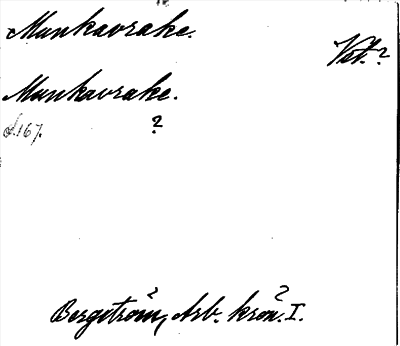 Munkavrake.
Vst.?
Munkavrake.
d. 167.
?
Bergström, Arb. krön. I.